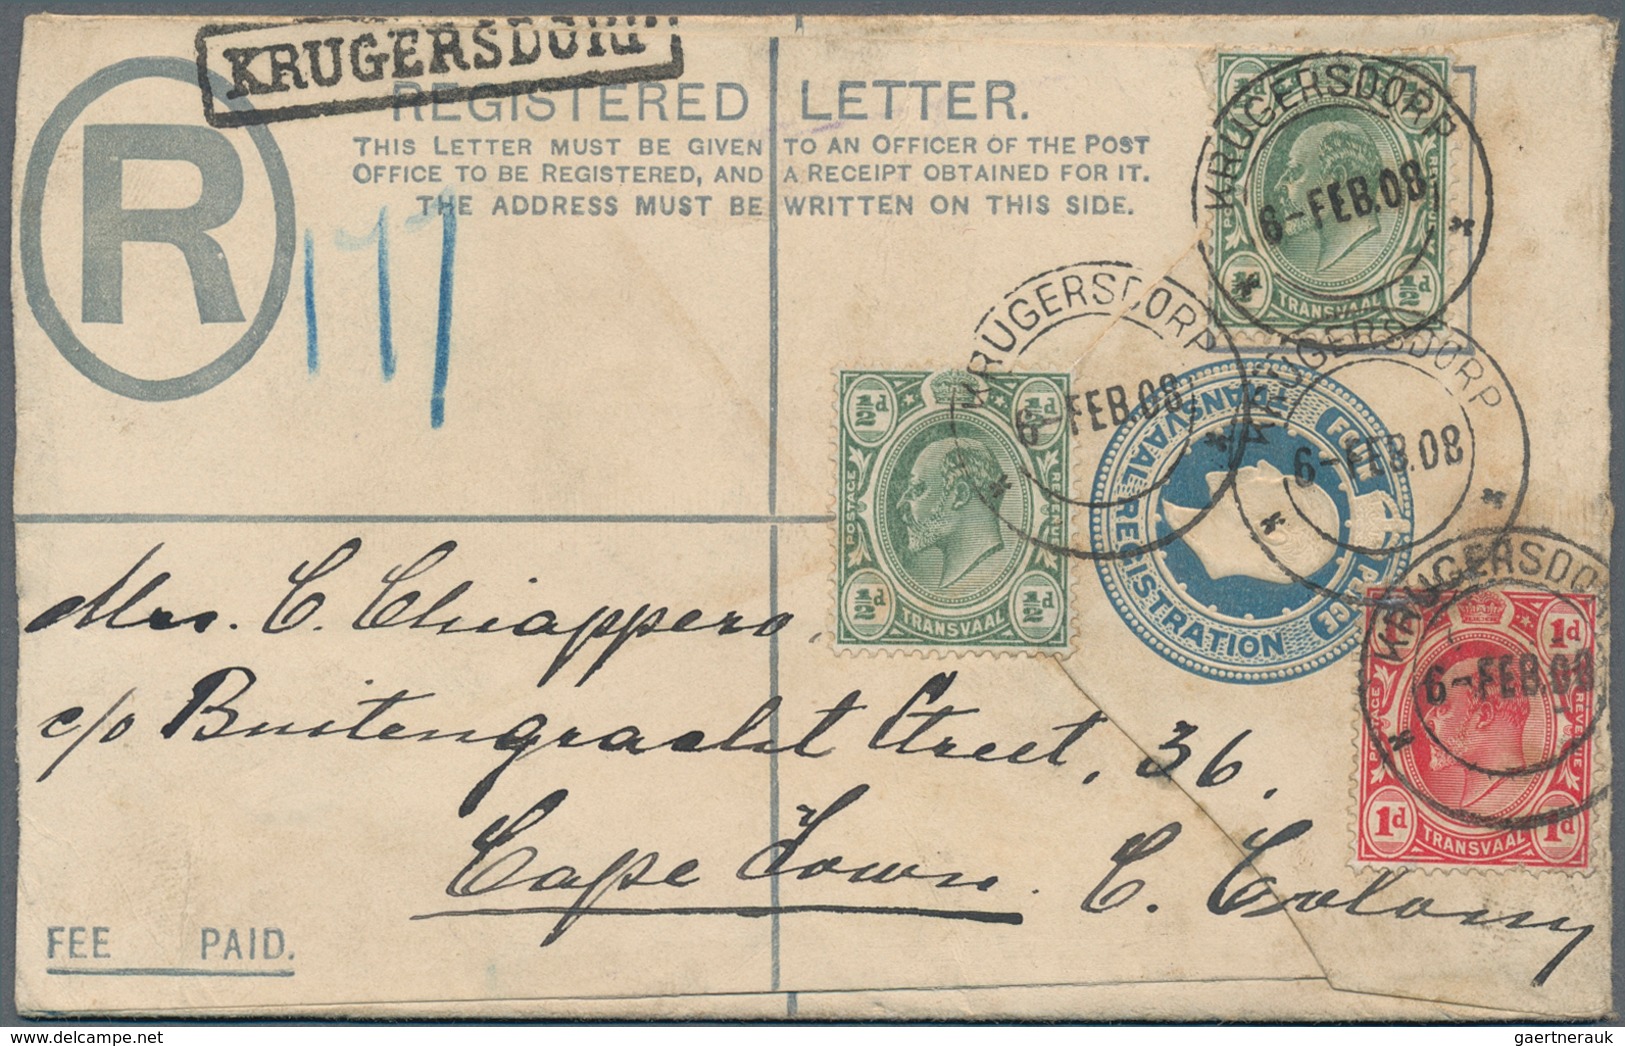 KRUGERSDORP
R
REGISTERED LETTER.
THIS LETTER MUST BE GIVEN TO AN OFFICER OF THE POST
OFFICE TO BE REGISTERED, AND A RECEIPT OBTAINED FOR IT.
THE ADDRESS MUST BE WRITTEN ON THIS SIDE.
177
KRUGERSDORP
6-FEB.08
½d ½d
POSTAGE REVENUE
TRANSVAAL
KRUGERSDORP
6-FEB.08
½d ½d
POSTAGE REVENUE
½d TRANSVAAL ½d
KRUGERSDORP
6-FEB.08
TRANSVAAL REGISTRATION
FOUR PENCE
KRUGERSDORP
6-FEB.08
1d
POSTAGE REVENUE
1d TRANSVAAL 1d
Mrs. C. Chiappero,
c/o Buitengracht Street, 36.
Cape Town. C. Colony
FEE PAID.
www.delcampe.net
gaertnerauk